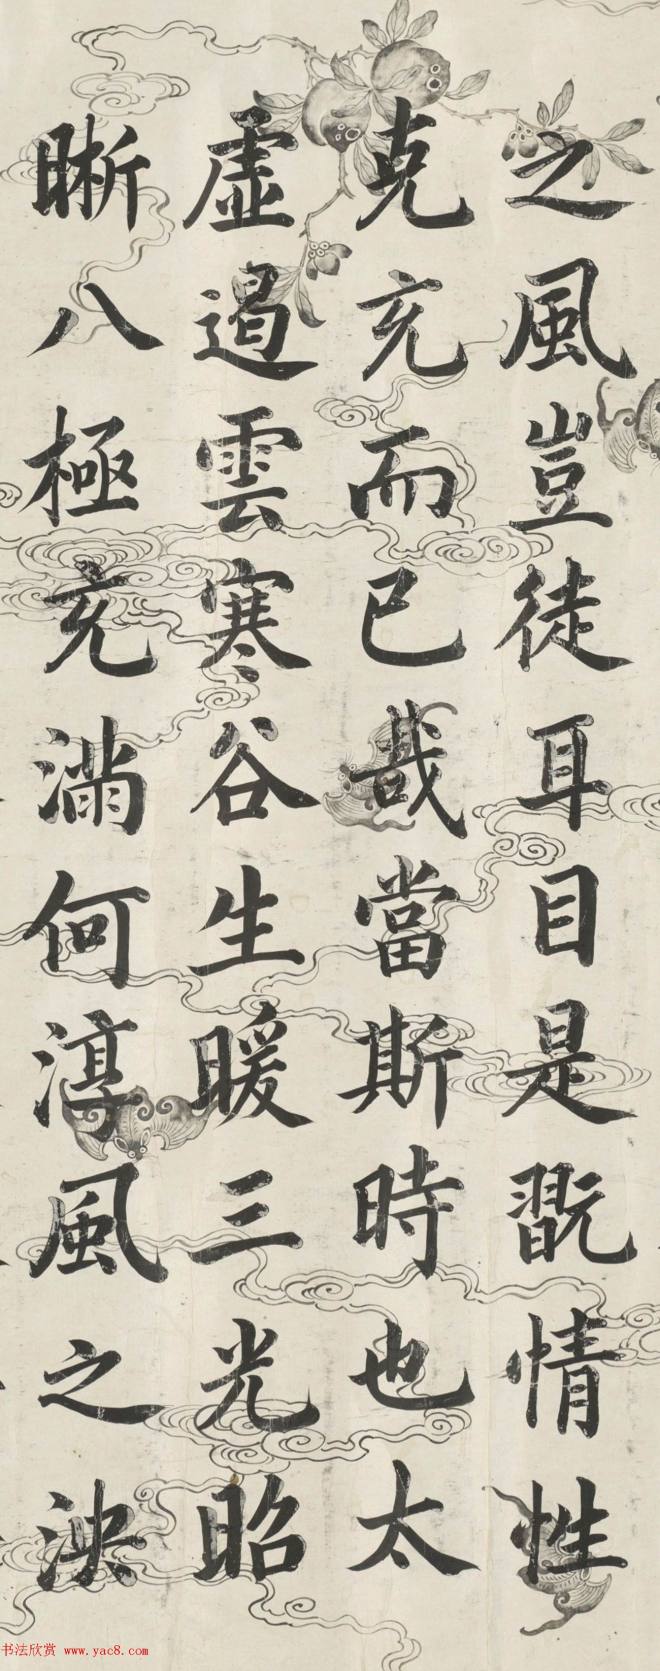 之風豈徒耳目是翫情性
克充而已哉當斯時也太
虛遏雲寒谷生暖三光昭
晰八極充滿何淳風之泱
书法欣赏 www.yac8.com